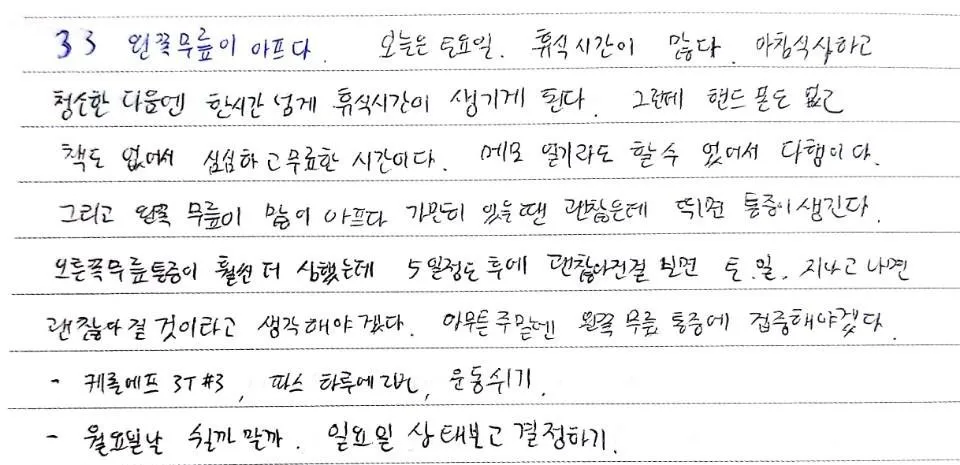 33 왼쪽무릎이 아프다. 오늘은 토요일. 휴식시간이 많다. 아침식사하고
청소한 다음엔 한시간 넘게 휴식시간이 생기게 된다. 그런데 핸드폰도 없고
책도 없어서 심심하고 무료한 시간이다. 메모 일기라도 할 수 있어서 다행이다.
그리고 왼쪽 무릎이 많이 아프다 가만히 있을땐 괜찮은데 뛰면 통증이 생긴다.
오른쪽무릎통증이 훨씬 더 심했는데 5일정도 후에 괜찮아진걸 보면 토.일. 지나고 나면
괜찮아질 것이라고 생각해야겠다. 아무튼 주말엔 왼쪽 무릎 통증에 집중해야겠다.
- 케롤에프 3T #3, 파스 하루에 2번, 운동쉬기.
- 월요일날 쉴까 말까. 일요일 상태보고 결정하기.